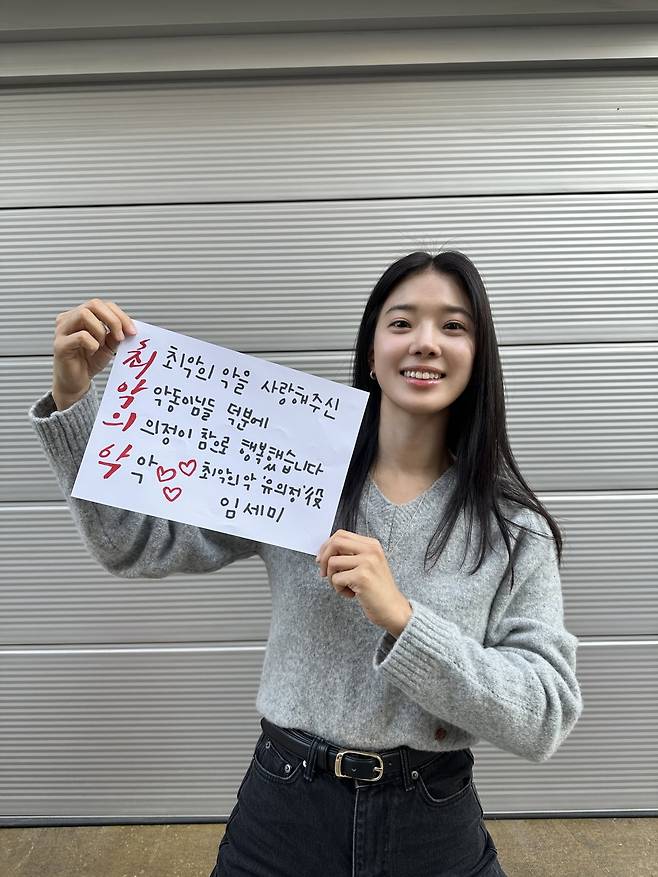 최 최악의 악을 사랑해주신
악 악동이님들 덕분에
의 의정이 참으로 행복했습니다
악 악♡♡♡ 최악의악 '유의정'役
임세미